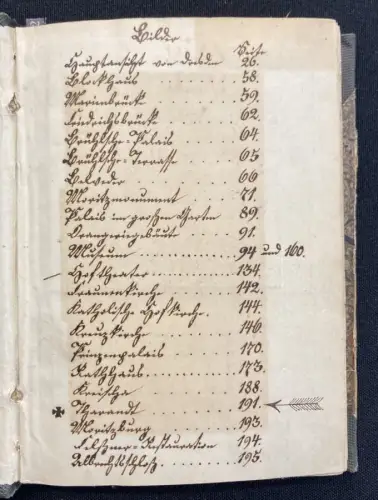 Bilder
Seite
Hauptansicht von Dresden 26.
Blockhaus . . . . . . . . 58.
Marienbrücke . . . . . . . 59.
Friedrichsbrücke . . . . . 62.
Brühlsche-Palais . . . . . 64.
Brühlsche-Terrasse . . . . 65
Belveder . . . . . . . . . 66
Moritzmonument . . . . . 71.
Palais im großen Garten 89.
Orangeriegebäude . . . . 91.
Museum . . . . . . . . . 94 und 160.
Hoftheater . . . . . . . . 134.
Frauenkirche . . . . . . . 142.
Katholische Hofkirche. 144.
Kreuzkirche . . . . . . . 146.
Prinzenpalais . . . . . . 170.
Rathhaus . . . . . . . . . 173.
Kreischa . . . . . . . . . 188.
Tharandt . . . . . . . . . 191.
Moritzburg . . . . . . . . 193.
Restauration 194.
Albrechtsschloß . . . . . 195.